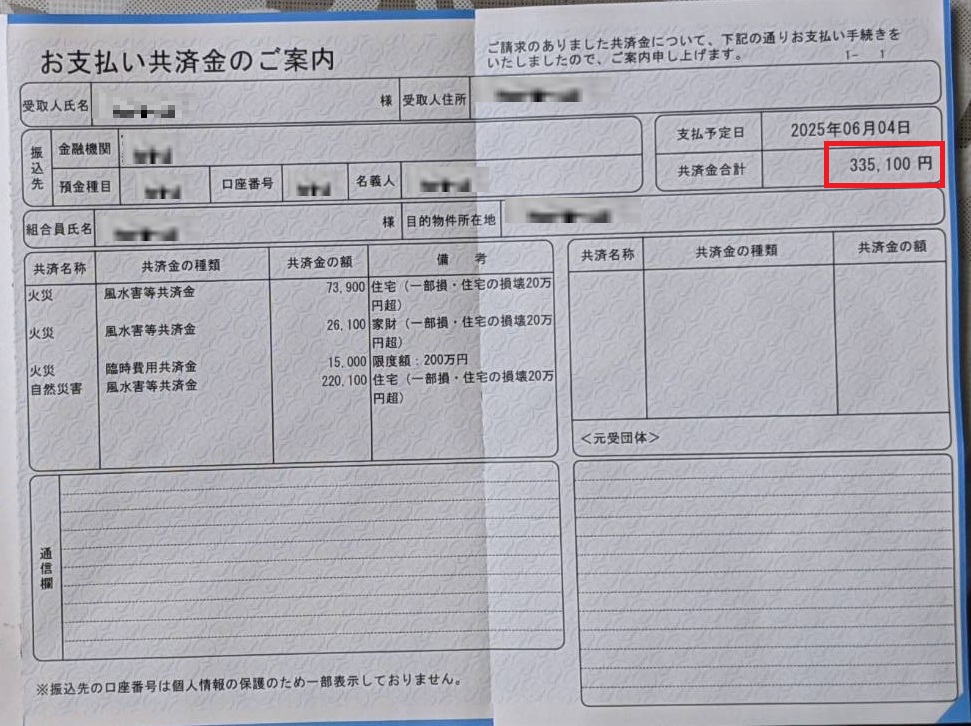 お支払い共済金のご案内
ご請求のありました共済金について、下記の通りお支払い手続きを
いたしましたので、ご案内申し上げます。
1- 1
受取人氏名 様 受取人住所
振込先 金融機関
預金種目 口座番号 名義人
支払予定日 2025年06月04日
共済金合計 335,100 円
組合員氏名 様 目的物件所在地
共済名称 共済金の種類 共済金の額 備 考
火災 風水害等共済金 73,900 住宅（一部損・住宅の損壊20万
円超）
火災 風水害等共済金 26,100 家財（一部損・住宅の損壊20万
円超）
火災 臨時費用共済金 15,000 限度額：200万円
自然災害 風水害等共済金 220,100 住宅（一部損・住宅の損壊20万
円超）
共済名称 共済金の種類 共済金の額
＜元受団体＞
通信欄
※振込先の口座番号は個人情報の保護のため一部表示しておりません。